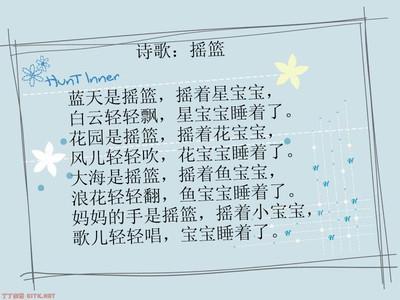 诗歌：摇篮
HunT Inner
蓝天是摇篮，摇着星宝宝，
白云轻轻飘，星宝宝睡着了。
花园是摇篮，摇着花宝宝，
风儿轻轻吹，花宝宝睡着了。
大海是摇篮，摇着鱼宝宝，
浪花轻轻翻，鱼宝宝睡着了。
妈妈的手是摇篮，摇着小宝宝，
歌儿轻轻唱，宝宝睡着了。